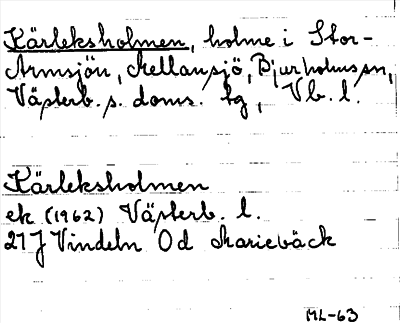 Kärleksholmen, holme i Stor-
Armsjön, Mellansjö, Bjurholms sn,
Västerb. s. doms. tg, Vb. l.
Kärleksholmen
ek (1962) Västerb. l.
21J Vindeln 0d Mariebäck
ML-63